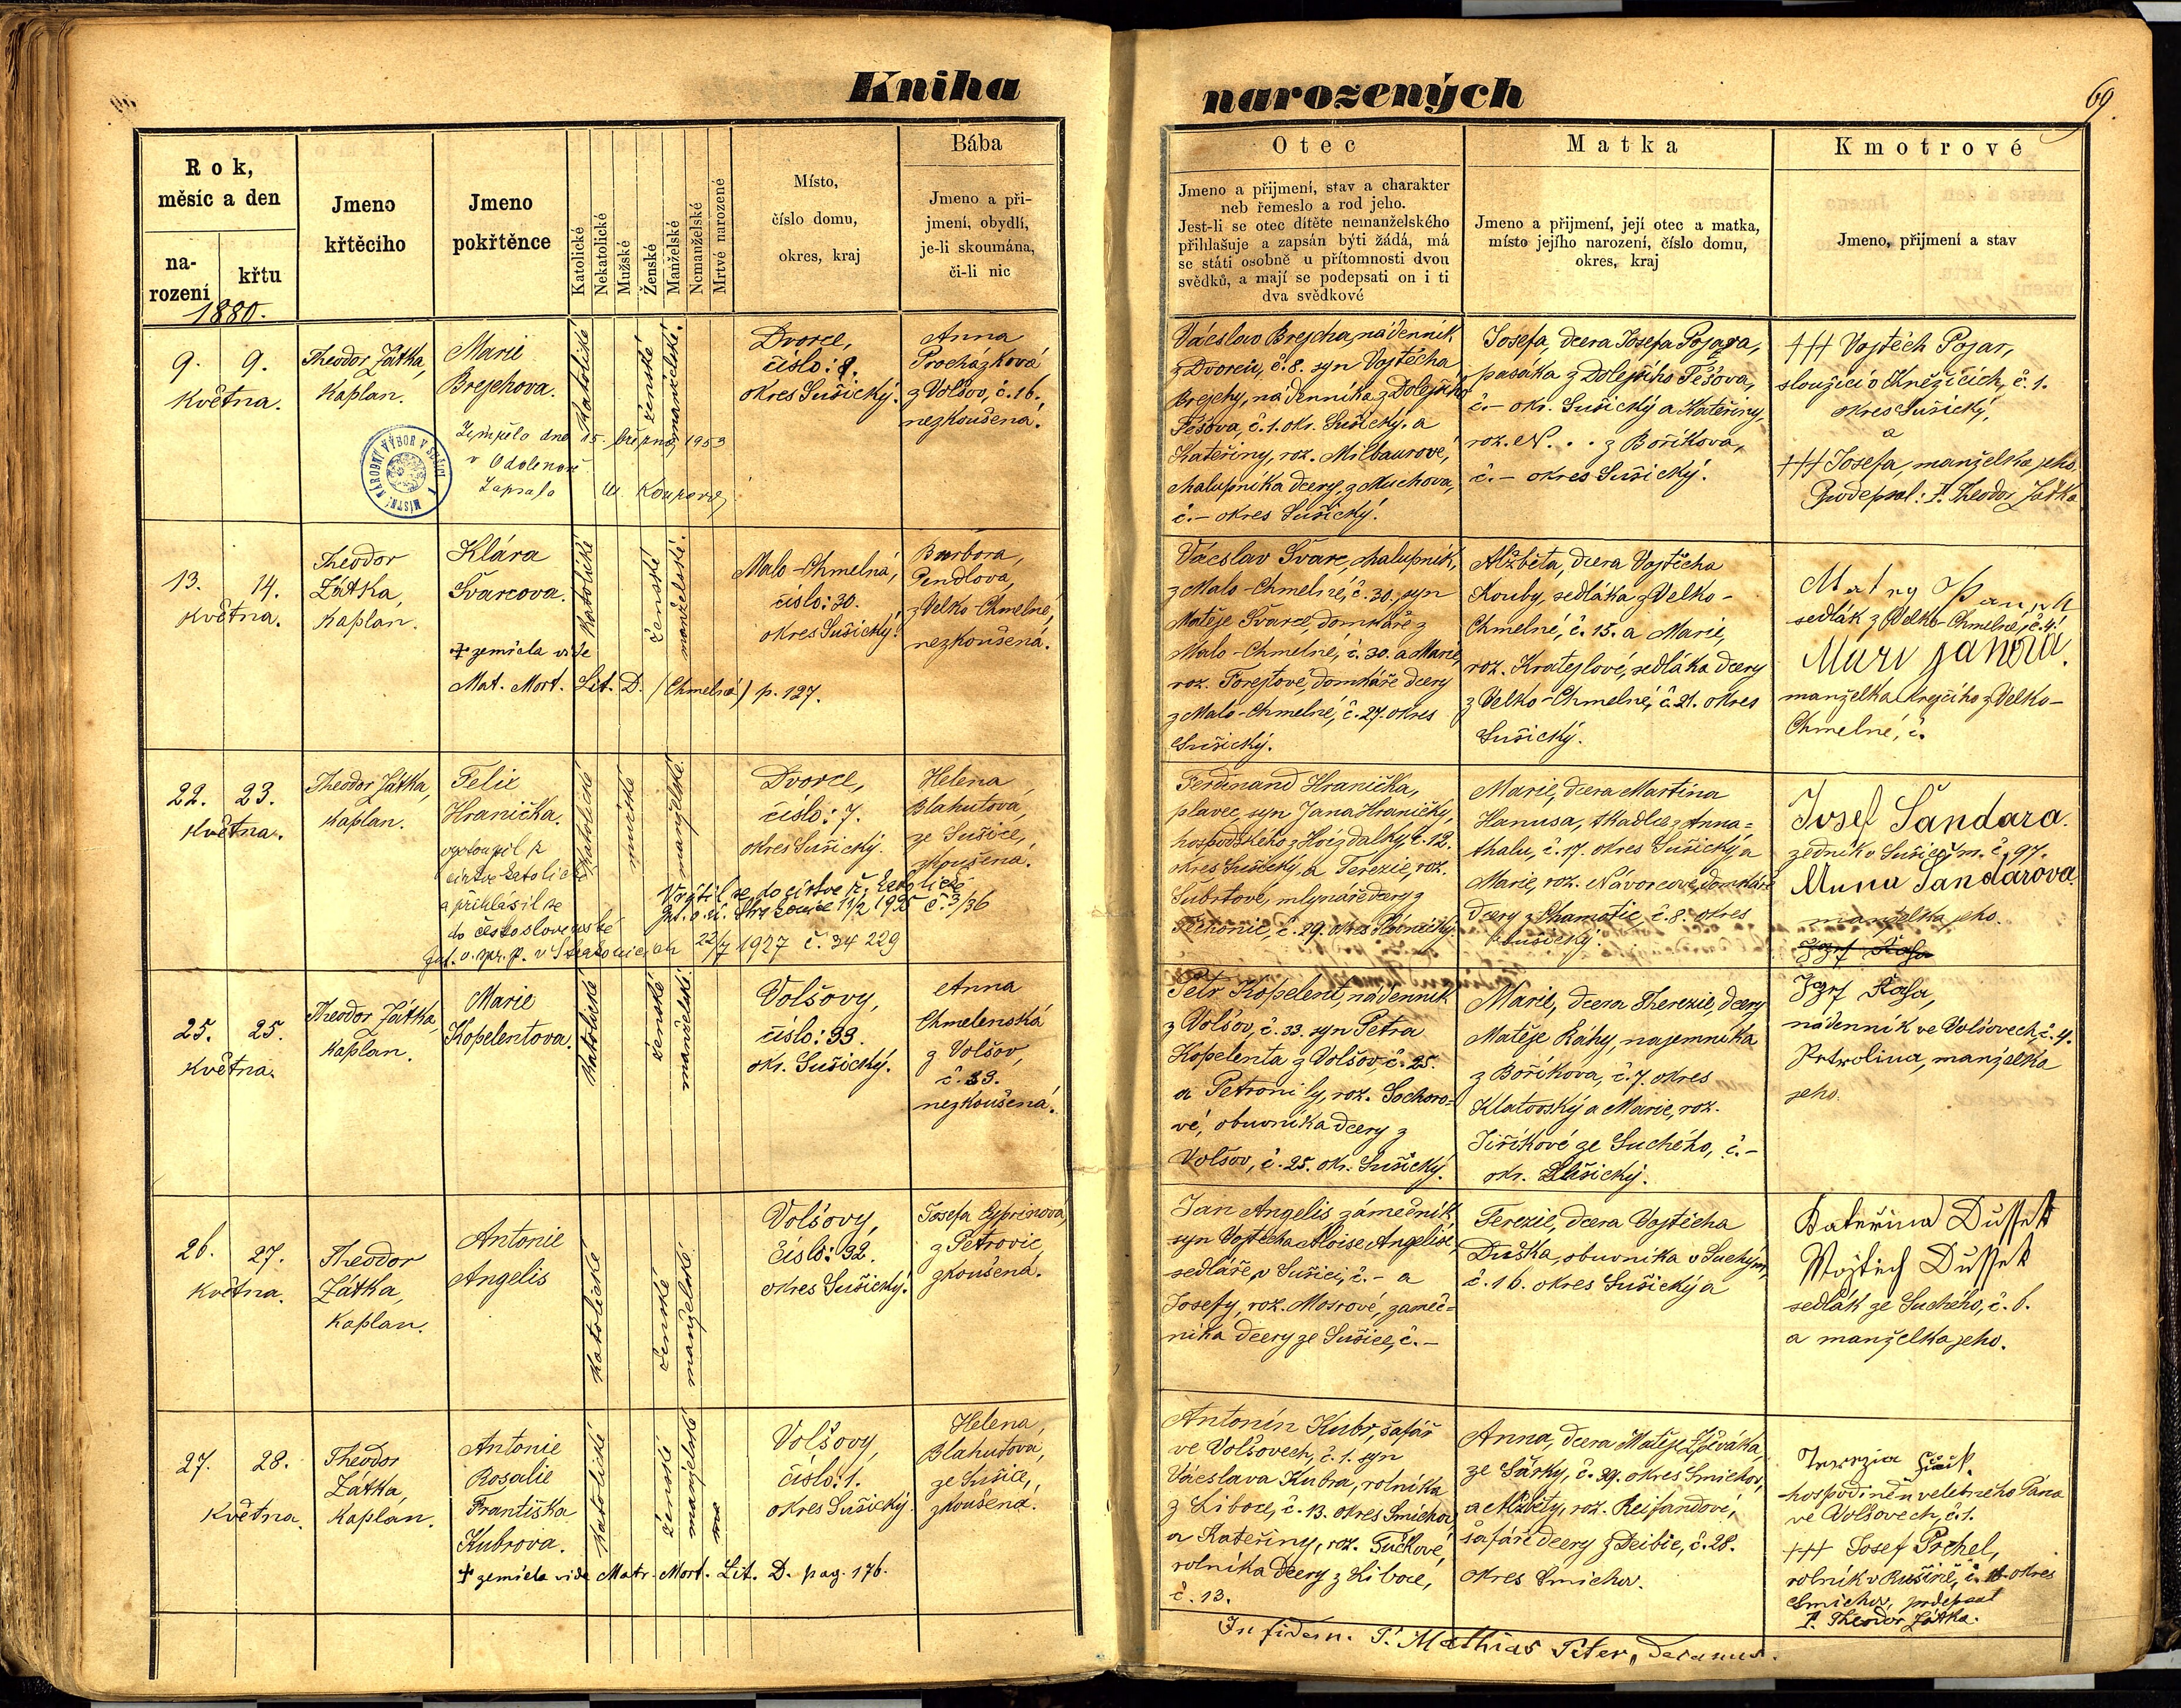 Kniha
narozených
69.
Rok,
měsíc a den
na-
rození
křtu
1880.
Jmeno
křtěcího
Jmeno
pokřtěnce
Katolické
Nekatolické
Mužské
Ženské
Manželské
Nemanželské
Mrtvé narozené
Místo,
číslo domu,
okres, kraj
Bába
Jmeno a při-
jmení, obydlí,
je-li skoumána,
či-li nic
Otec
Jmeno a přijmení, stav a charakter
neb řemeslo a rod jeho.
Jest-li se otec dítěte nemanželského
přihlašuje a zapsán býti žádá, má
se státi osobně u přítomnosti dvou
svědků, a mají se podepsati on i ti
dva svědkové
Matka
Jmeno a přijmení, její otec a matka,
místo jejího narození, číslo domu,
okres, kraj
Kmotrové
Jmeno, přijmení a stav
9. 9.
Května.
Theodor Zátka,
Kaplan.
Marie
Brejchova.
Zemřela dne 15. března 1953
v Odolenov
Zapsala
MÍSTNÍ NÁRODNÍ VÝBOR V SUŠICI
Katolické
ženské
manželské.
Dvorce,
číslo: 8.
okres Sušický.
Anna
Procházková
z Volšov, č. 16.
nezkoušená.
Václav Brejcha, nádenník
z Dvorců, č. 8. syn Vojtěcha
Brejchy, nádenníka z Dolejšího
Těšova, č. 1. okr. Sušický a
Kateřiny, roz. Milbaurové,
chalupníka dcery, z Muchova,
č. – okres Sušický.
Josefa, dcera Josefa Pojara,
pasáka z Dolejšího Těšova,
č. – okr. Sušický a Kateřiny,
roz. N. . . z Bořikova,
č. – okres Sušický.
+++ Vojtěch Pojar,
sloužící v Kněžicích, č. 1.
okres Sušický,
a
+++ Josefa, manželka jeho.
Podepsal: P. Theodor Zátka
13. 14.
Května.
Theodor
Zátka,
Kaplan.
Klára
Švarcova.
+ zemřela vide
Mat. Mort. Lit. D. (Chmelná) p. 127.
Katolické
ženské
manželské.
Malo-Chmelná,
číslo: 30.
okres Sušický.
Barbora,
Pendlova,
z Velko-Chmelné,
nezkoušená.
Václav Švarc, chalupník,
z Malo-Chmelné, č. 30, syn
Matěje Švarce, domkáře z
Malo-Chmelné, č. 30. a Marie,
roz. Forejtové, domkáře dcery
z Malo-Chmelné, č. 27. okres
Sušický.
Alžběta, dcera Vojtěcha
Kouby, sedláka z Velko-
Chmelné, č. 15. a Marie,
roz. Kratejlové, sedláka dcery
z Velko-Chmelné, č. 21. okres
Sušický.
sedlák z Velko-Chmelné, č. 4.
manželka krejčího z Velko-
Chmelné, č.
22. 23.
Května.
Theodor Zátka,
Kaplan.
Felix
Hranička.
vystoupil z
církve katolické
a přihlásil se
do československé
22/7 1927 č. 34 229
Vrátil se do církve ř. katolické
11/2 1935 č. 3/36
Katolické
mužské
manželské.
Dvorce,
číslo: 7.
okres Sušický.
Helena
Blahutová,
ze Sušice,
zkoušená.
Ferdinand Hranička,
plavec, syn Jana Hraničky,
okres Sušický, a Terezie, roz.
Šubrtové, mlynáře dcery z
Marie, dcera Martina
Hanusa, tkadlce z Anna=
thalu, č. 17. okres Sušický a
Marie, roz. Návorcové, domkáře
dcery z Chamotic, č. 8. okres
Sušický.
Josef Šandara.
zedník v Sušici, m. č. 97.
Anna Šandárova.
manželka jeho.
25. 25.
Května.
Theodor Zátka,
Kaplan.
Marie
Kopelentova.
Katolické
ženské
manželské
Volšovy,
číslo: 33.
okr. Sušický.
Anna
Chmelenská
z Volšov,
č. 33.
nezkoušená.
Petr Kopelent, nádenník
z Volšov, č. 33. syn Petra
Kopelenta z Volšov, č. 25.
a Petronily, roz. Sochoro=
vé, obuvníka dcery z
Volšov, č. 25. okr. Sušický.
Marie, dcera Therezie, dcery
Matěje Ráhy, najemníka
z Bořikova, č. 7. okres
Klatovský a Marie, roz.
Jiříkové ze Suchého, č. –
okr. Sušický.
nádenník ve Volšovech, č. 4.
manželka
jeho.
26. 27.
Května.
Theodor
Zátka,
Kaplan.
Antonie
Angelis
Katolické
ženské
manželské
Volšovy,
číslo: 32.
okres Sušický.
Josefa Cyprinová,
z Petrovic,
zkoušená.
Jan Angelis zámečník,
syn Vojtěcha Aloise Angelise,
sedláře, v Sušici, č. – a
Josefy, roz. Mosrové, zameč=
níka dcery ze Sušice, č. –
Terezie, dcera Vojtěcha
Duška, obuvníka v Suchým,
č. 16. okres Sušický a
Kateřina Duffek
Wojtěch Duffek
sedlák ze Suchého, č. 6.
a manželka jeho.
27. 28.
Května.
Theodor
Zátka,
Kaplan.
Antonie
Rosalie
Františka
Kubrova.
+ zemřela vide Matr. Mort. Lit. D. pag. 176.
Katolické
ženské
manželské
Volšovy,
číslo: 1.
okres Sušický.
Helena,
Blahutova,
ze Sušice,
zkoušená.
Antonín Kubr, šafář
ve Volšovech, č. 1. syn
Václava Kubra, rolníka
z Liboce, č. 13. okres Smíchov,
a Kateřiny, roz. Tučkové,
rolníka dcery z Liboce,
č. 13.
Anna, dcera Matěje
ze Šárky, č. 29. okres Smíchov,
a Alžběty, roz. Reifandové,
šafáře dcery z Dejvic, č. 28.
okres Smíchov.
ve Volšovech, č. 1.
+++ Josef Prchel,
rolník v okres
Smíchov, podepsal
P. Theodor Zátka.
In fidem. P. Mathias Peter, Decanus.